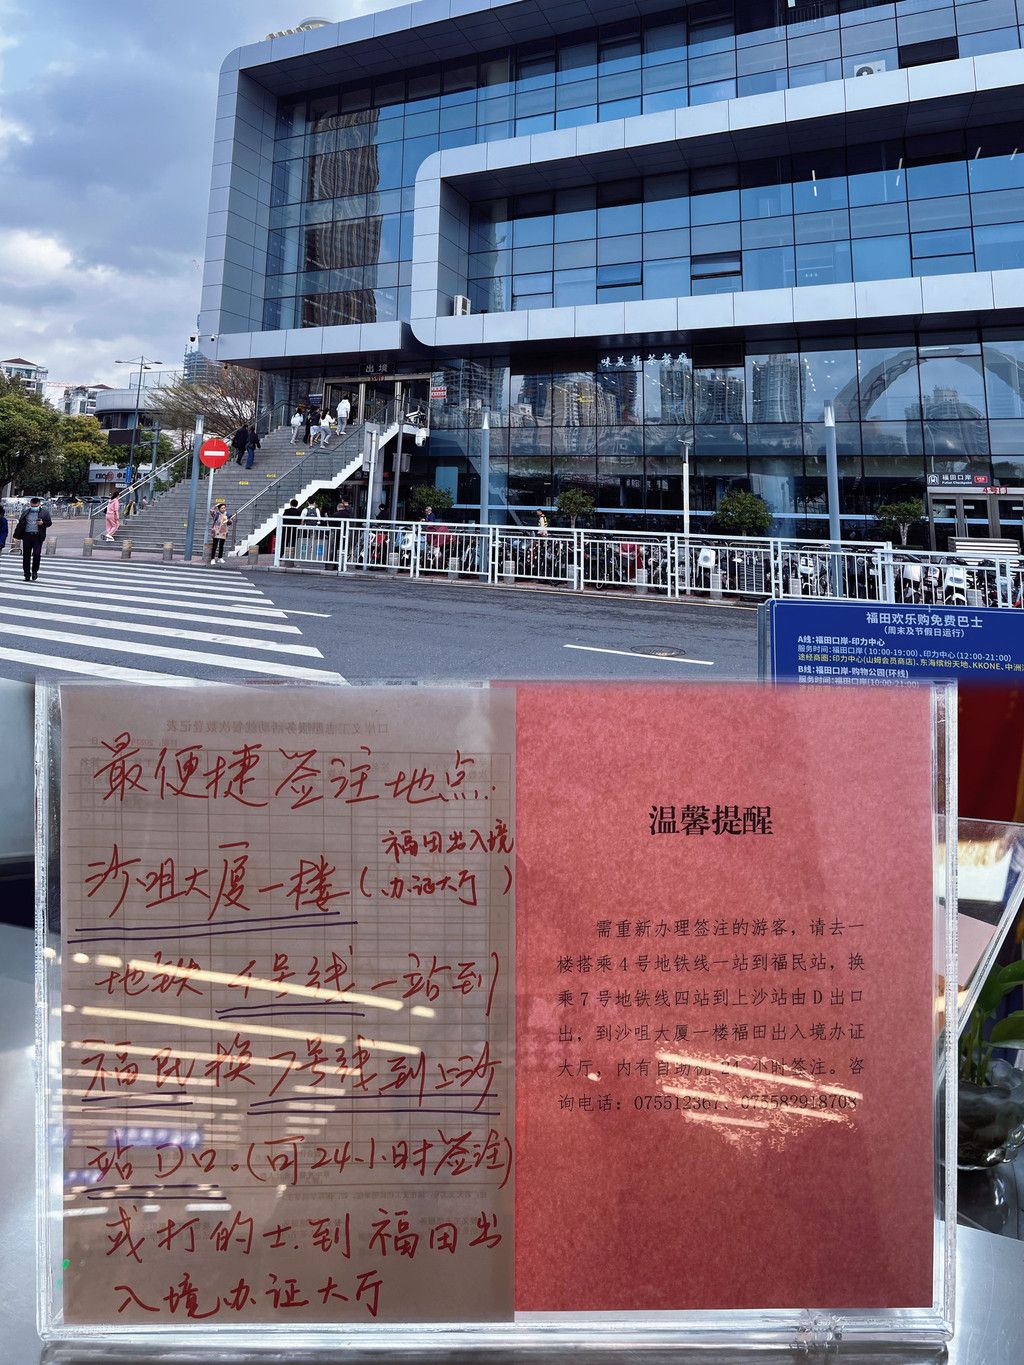 出境
味美轩茶餐厅
福田口岸
福田欢乐购免费巴士
(周末及节假日运行)
A线:福田口岸-印力中心
服务时间:福田口岸(10:00-19:00)、印力中心(12:00-21:00)
途经商圈:印力中心(山姆会员商店)、东海缤纷天地、KKONE、中洲
B线:福田口岸-购物公园(环线)
服务时间:福田口岸(10:00-21:00)
最便捷签注地点:
沙咀大厦一楼(福田出入境
办证大厅)
地铁4号线一站到
福民换7号线到上沙
站D口。(可24小时签注)
或打的士到福田出
入境办证大厅
温馨提醒
需重新办理签注的游客，请去一
楼搭乘4号地铁线一站到福民站，换
乘7号地铁线四站到上沙站由D出口
出，到沙咀大厦一楼福田出入境办证
大厅，内有自助机 24 小时签注。咨
询电话：075512367、075582918708